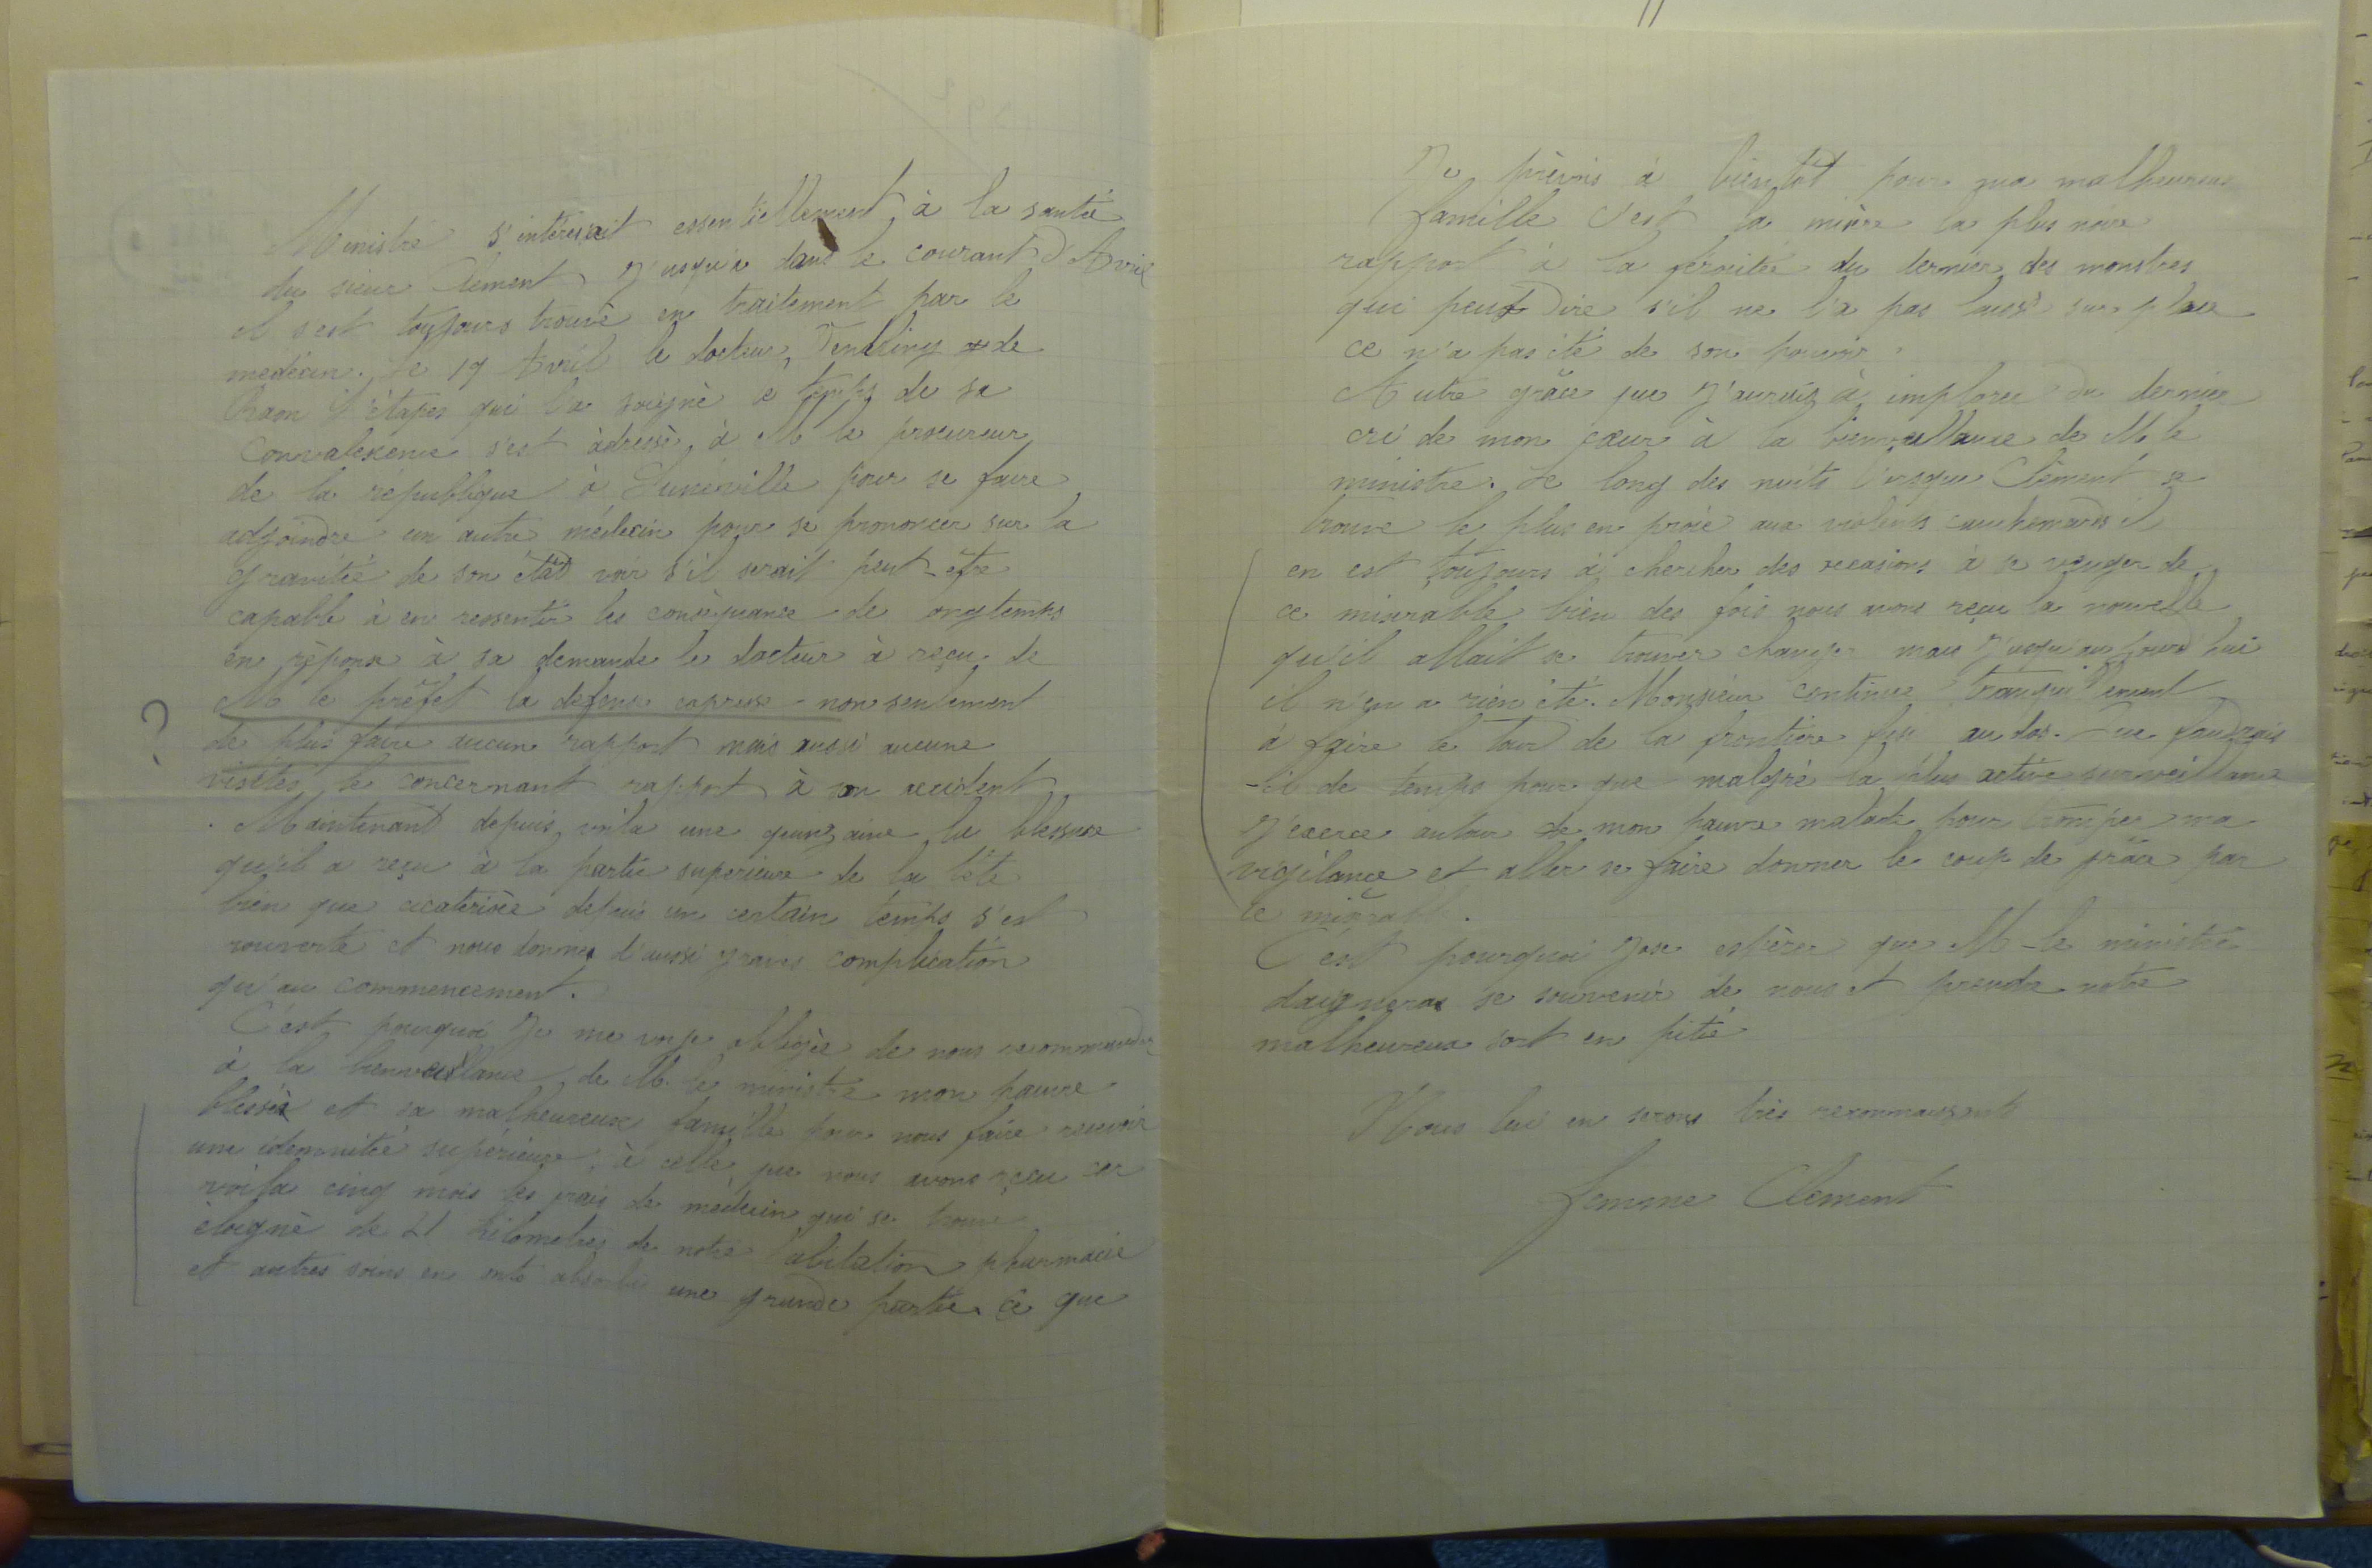 Ministre s'intéressait essentiellement à la santé
du sieur Clement J'usqu'à dans le courant d'Avril
il s'est toujours trouvé en traitement par le
medecin. Le 19 Avril le docteur de
Raon l'étapes qui l'a soigné le temps de sa
convalexence s'est àdressè à M le procureur
de la rèpublique à Lunéville pour se faire
adjoindre un autre médecin pour se prononcer sur la
gravitée de son état voir s'il serait peut-être
capable à en ressentir les consèquance de longtemps
en rèponse à sa demande le docteur à reçu de
M le prèfet la defense expresse non seulement
de plus faire aucun rapport mais aussi aucune
visites le concernant rapport à son accident
. Maintenant depuis voila une quinzaine la blessure
qu'il a reçu à la partie superieure de la tête
bien que cicaterisèe depuis un certain temps s'est
rouverte et nous donnes d'aussi graves complication
qu'au commencement.
C'est pourquoi Je me voie obligèe de nous recommander
à la bienveillance de M. le ministre mon pauvre
blessé et sa malheureuse famille pour nous faire recevoir
une idemnitée supérieure à celle que nous avons reçu car
voila cinq mois les frais de médecin qui se trouve
èloignè de 21 kilometres de notre habitation pharmacie
et autres soins en ont absorbé une grande partie. Ce que
Je prèvois à bientôt pour ma malheureuse
famille c'est la misère la plus noire
rapport à la ferocitée du dernier des monstres
qui peut dire s'il ne l'a pas laissé sur place
ce n'a pas été de son pouvoir.
Autre grâce que J'aurais à implorer du dernier
cri de mon cœur à la bienveillance de M. le
ministre. Le long des nuits lorsque Clèment se
trouve le plus en proie aux violents cauchemards il
en est toujours à chercher des occasions à se venger de
ce miserable bien des fois nous avons reçu la nouvelle
qu'il allait se trouver changer mais J'usqu'aujourd'hui
il n'en a rien été. Monsieur continue tranquillement
à faire le tour de la frontière fusi au dos. Que faudrais
-il de temps pour que malgrè la plus active surveillance
J'exerce autour de mon pauvre malade pour tromper ma
vigilance et aller se faire donner le coup de grâce par
ce misèrabl.
C'est pourquoi J'ose espèrer que M-le ministre
daigneras se souvenir de nous et prendre notre
malheureux sort en pitié
Nous lui en serons très reconnaissants
femme Clement
?